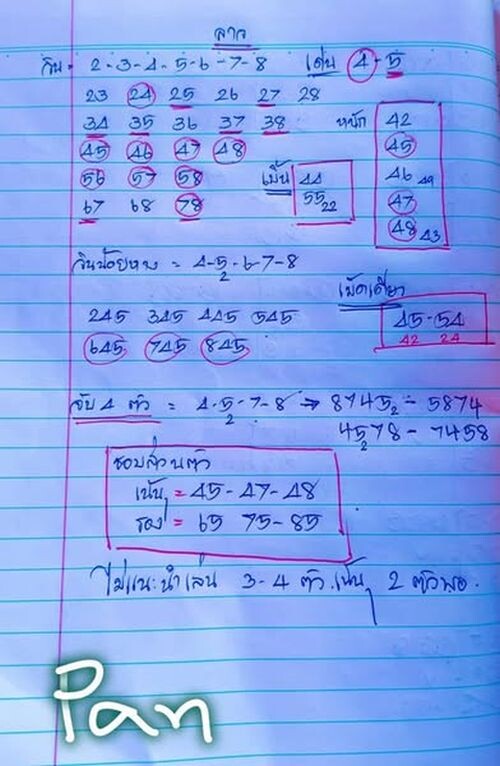 ลาว
วิน = 2-3-4-5-6-7-8 เด่น 4-5
23 24 25 26 27 28
34 35 36 37 38 หนัก 42
45 46 47 48 45
56 57 58 เบิ้น 44 46 49
67 68 78 55 22 47
48 43
วินน้อยหาง = 4-5-6-7-8
2
เม็ดเดียว
245 345 445 545 45-54
645 745 845 42 24
จับ 4 ตัว = 4-5-7-8 → 8745 2 - 5874
2 4578 - 7458
2
ชอบส่วนตัว
เน้น = 45-47-48
รอง = 65 75-85
ไม่แนะนำเล่น 3-4 ตัว เน้นๆ 2 ตัวพอ.
Pan